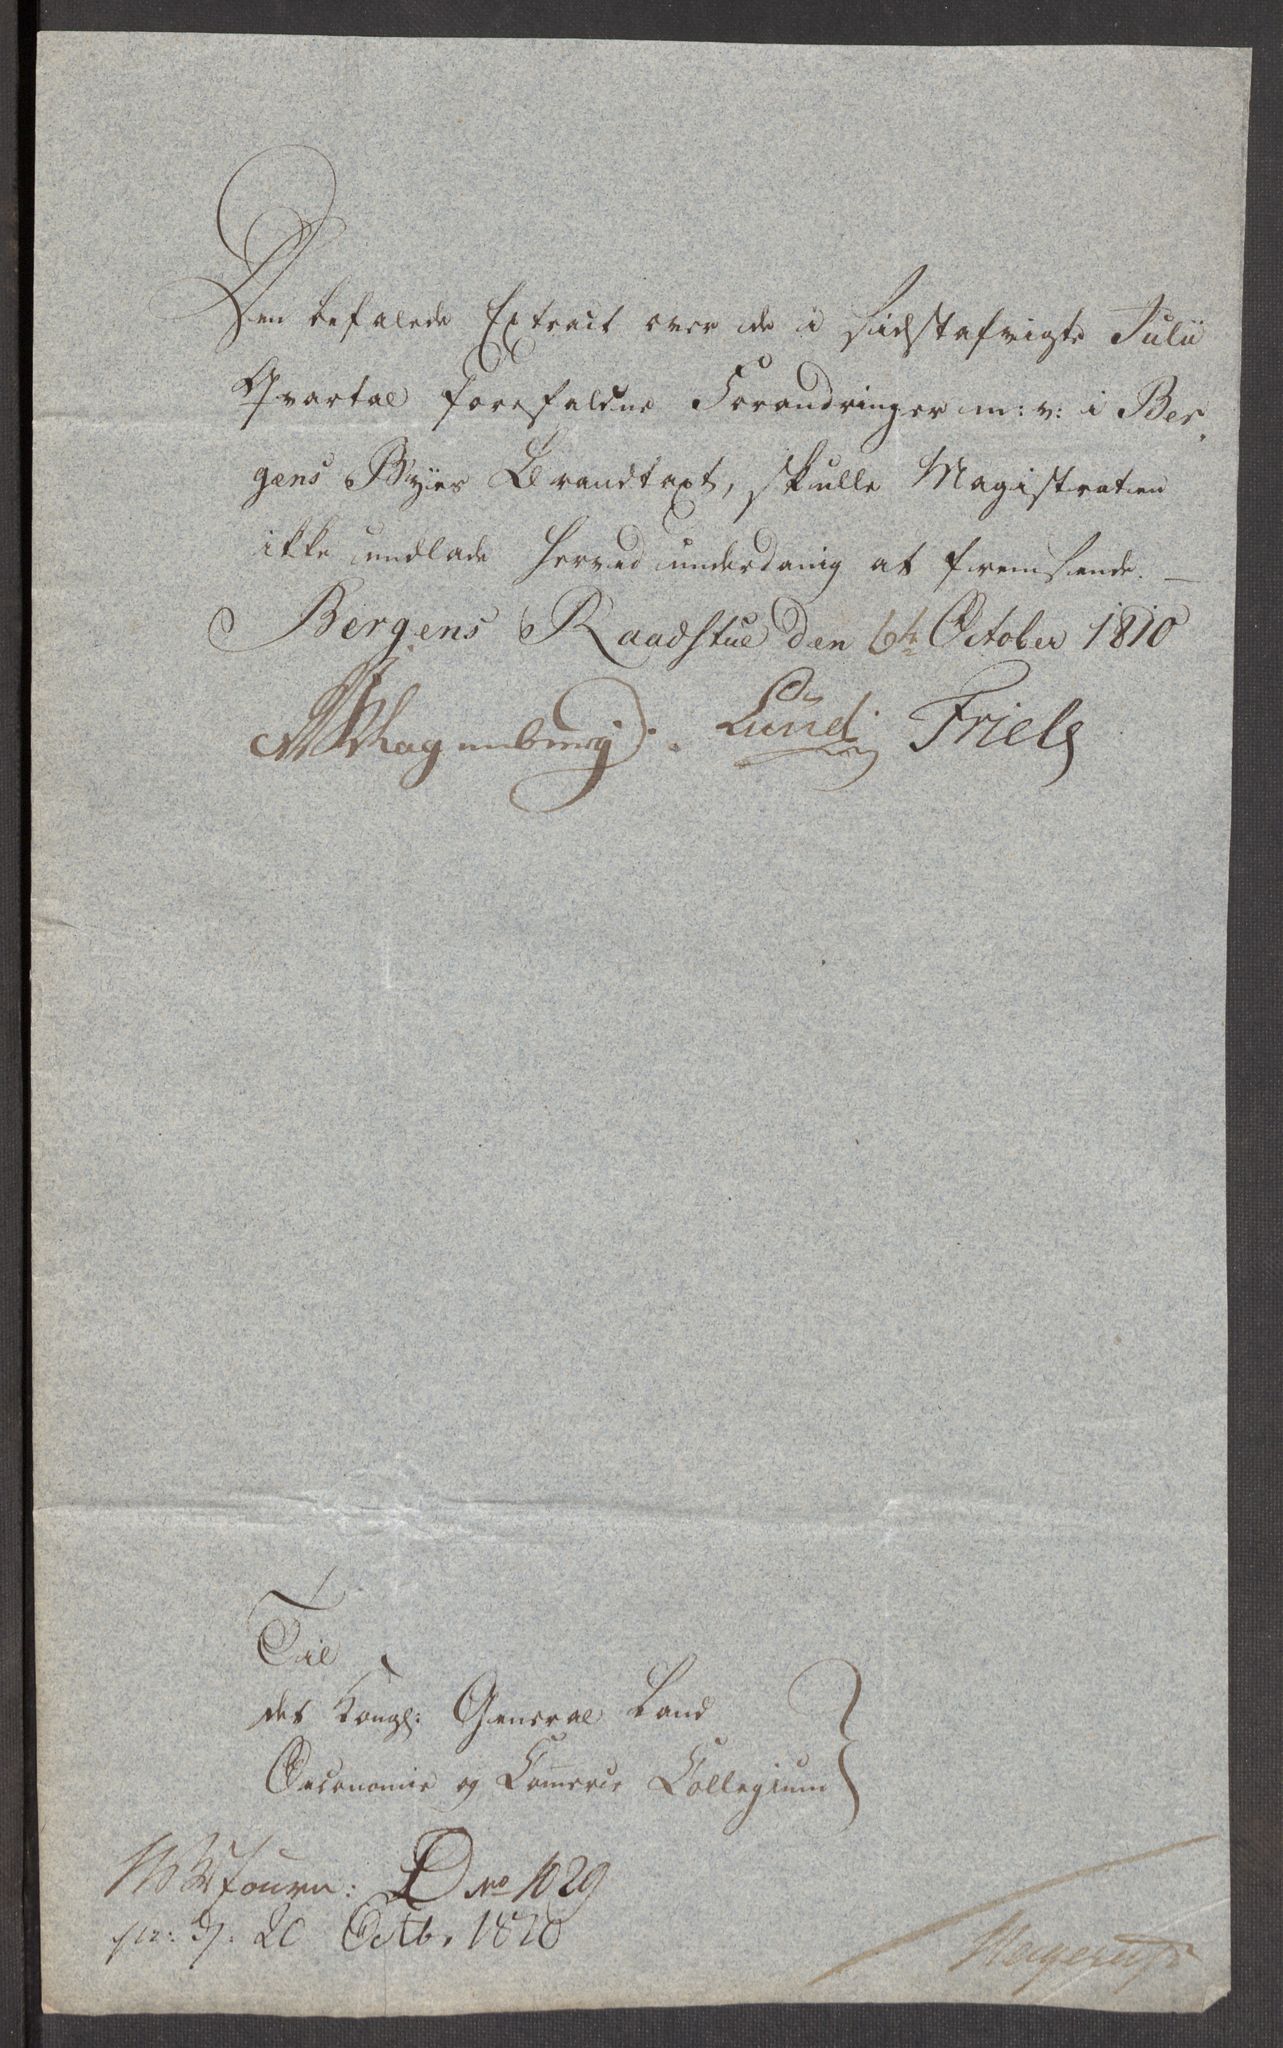 Den befalede Extract over de i sidstafvigte Julii
Qvartal forefaldne Forandringer m: v: i Ber,
gens Byes Brandtaxt, skulle Magistraten
ikke undlade herved underdanig at fremsende. —
Bergens Raadstue den 6te October 1810
Lund Friele
Til
det Kongl: General Land
Oeconomie og Commerce Collegium
Journ: D No 1029
pr: d: 20 Octb. 1810